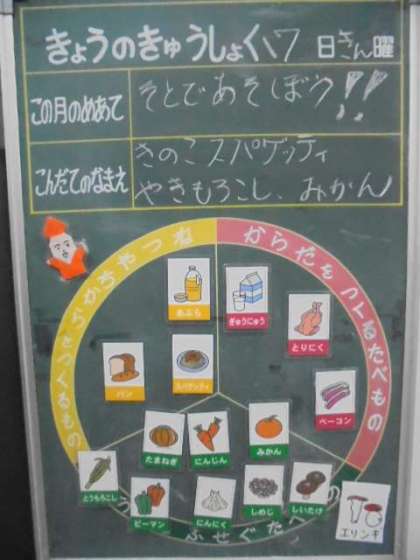 きょうのきゅうしょく 17 日きん曜
この月のめあて
そとであそぼう!!
こんだてのなまえ
きのこスパゲッティ
やきもろこし、みかん
ねつやちから
をつくるもの
からだをつくるたべもの
あぶら
ぎゅうにゅう
とりにく
パン
スパゲッティ
ベーコン
たまねぎ
にんじん
みかん
とうもろこし
ピーマン
にんにく
しめじ
しいたけ
エリンギ
ふせぐた